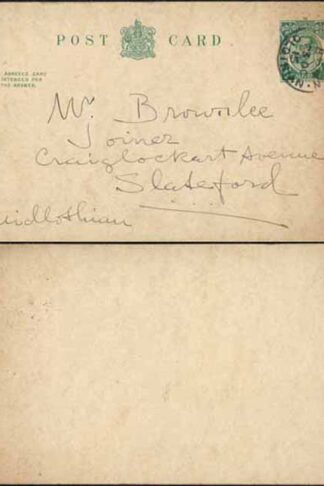 POST CARD
ADDRESS CARD
INTENDED FOR
THE ANSWER.
Mr. Brownlee
Joiner
Craiglockart Avenue
Slateford
Midlothian